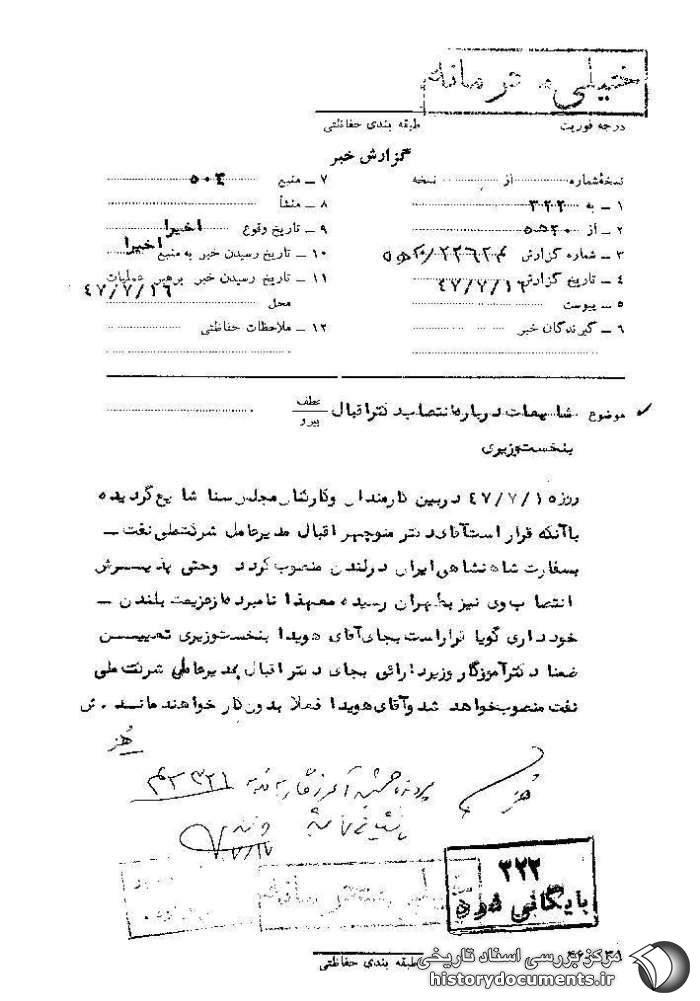 خیلی محرمانه
درجه فوریت
طبقه بندی حفاظتی
گزارش خبر
نسخهٔ شماره از نسخه
۱ ـ به ۳۲۲
۲ ـ از
۳ ـ شماره گزارش
۴ ـ تاریخ گزارش ۴۷/۷/۱۶
۵ ـ پیوست
۶ ـ گیرندگان خبر
۷ ـ منبع ۵۰۴
۸ ـ منشأ
۹ ـ تاریخ وقوع اخیرا
۱۰ ـ تاریخ رسیدن خبر به منبع اخیرا
۱۱ ـ تاریخ رسیدن خبر برهبر عملیات
محل ۴۷/۷/۱۶
۱۲ ـ ملاحظات حفاظتی
موضوع شایعات درباره انتصاب دکتر اقبال
عطف
پیرو
بنخست وزیری
روز ۴۷/۷/۱۵ دربین کارمندان وکارکنان مجلس سنا شایع گردیده
باآنکه قرار است آقای دکتر منوچهر اقبال مدیرعامل شرکت ملی نفت ـ
بسفارت شاهنشاهی ایران درلندن منصوب گردد وحتی پذیرش
انتصاب وی نیز بطهران رسیده معهذا نامبرده ازعزیمت بلندن ـ
خودداری گویا قراراست بجای آقای هویدا بنخست وزیری تعیین
ضمنا دکتر آموزگار وزیر دارائی بجای دکتر اقبال بمدیرعاملی شرکت ملی
نفت منصوب خواهد شد و آقای هویدا فعلا بدون کار خواهند ماند . ش
۳۲۲
بایگانی شود
طبقه بندی حفاظتی
مرکز بررسی اسناد تاریخی
historydocuments.ir